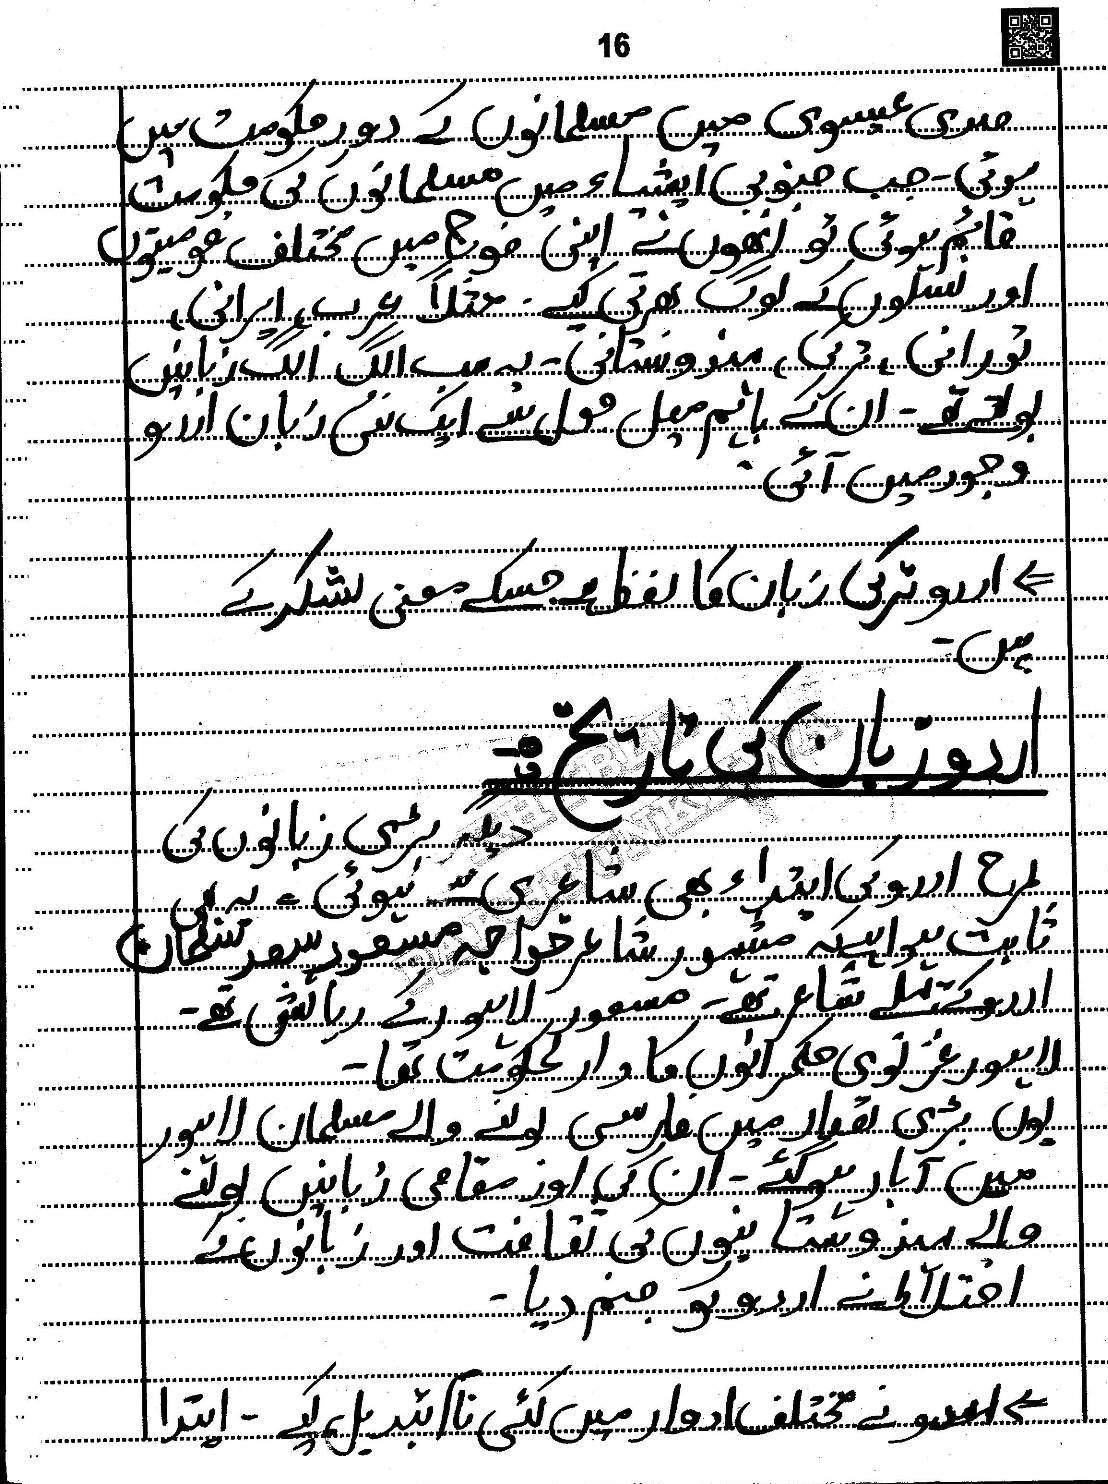 16
صدی عیسوی میں مسلمانوں کے دور حکومت میں
ہوئی - جب جنوبی ایشاء میں مسلمانوں کی حکومت
قائم ہوئی تو انھوں نے اپنی فوج میں مختلف قومیتوں
اور نسلوں کے لوگ بھرتی کیے - مثلاً عرب، ایرانی،
تورانی، ترکی، ہندوستانی - یہ سب الگ الگ زبانیں
بولتے تھے - ان کے باہم میل جول سے ایک نئی زبان اردو
وجود میں آئی -
⇐ اردو ترکی زبان کا لفظ ہے جسکے معنی لشکر کے
ہیں -
اردو زبان کی تاریخ :-
دیگر بڑی زبانوں کی
طرح اردو کی ابتداء بھی شاعری سے ہوئی - یہ بھی
ثابت ہوا ہے کہ مشہور شاعر خواجہ مسعود سعد سلمان
اردو کے پہلے شاعر تھے - مسعود لاہور کے رہائشی تھے -
لاہور غزنوی حکمرانوں کا دارلحکومت تھا -
یوں بڑی تعداد میں فارسی بولنے والے مسلمان لاہور
میں آباد ہو گئے - ان کی اور مقامی زبانیں بولنے
والے ہندوستانیوں کی ثقافت اور زبانوں کے
اختلاط نے اردو کو جنم دیا -
⇐ اردو نے مختلف ادوار میں کئی نام تبدیل کیے - ابتدا